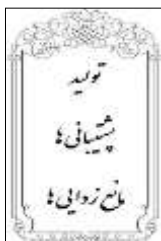 تولید
پشتیبانی ها
مانع زدایی ها